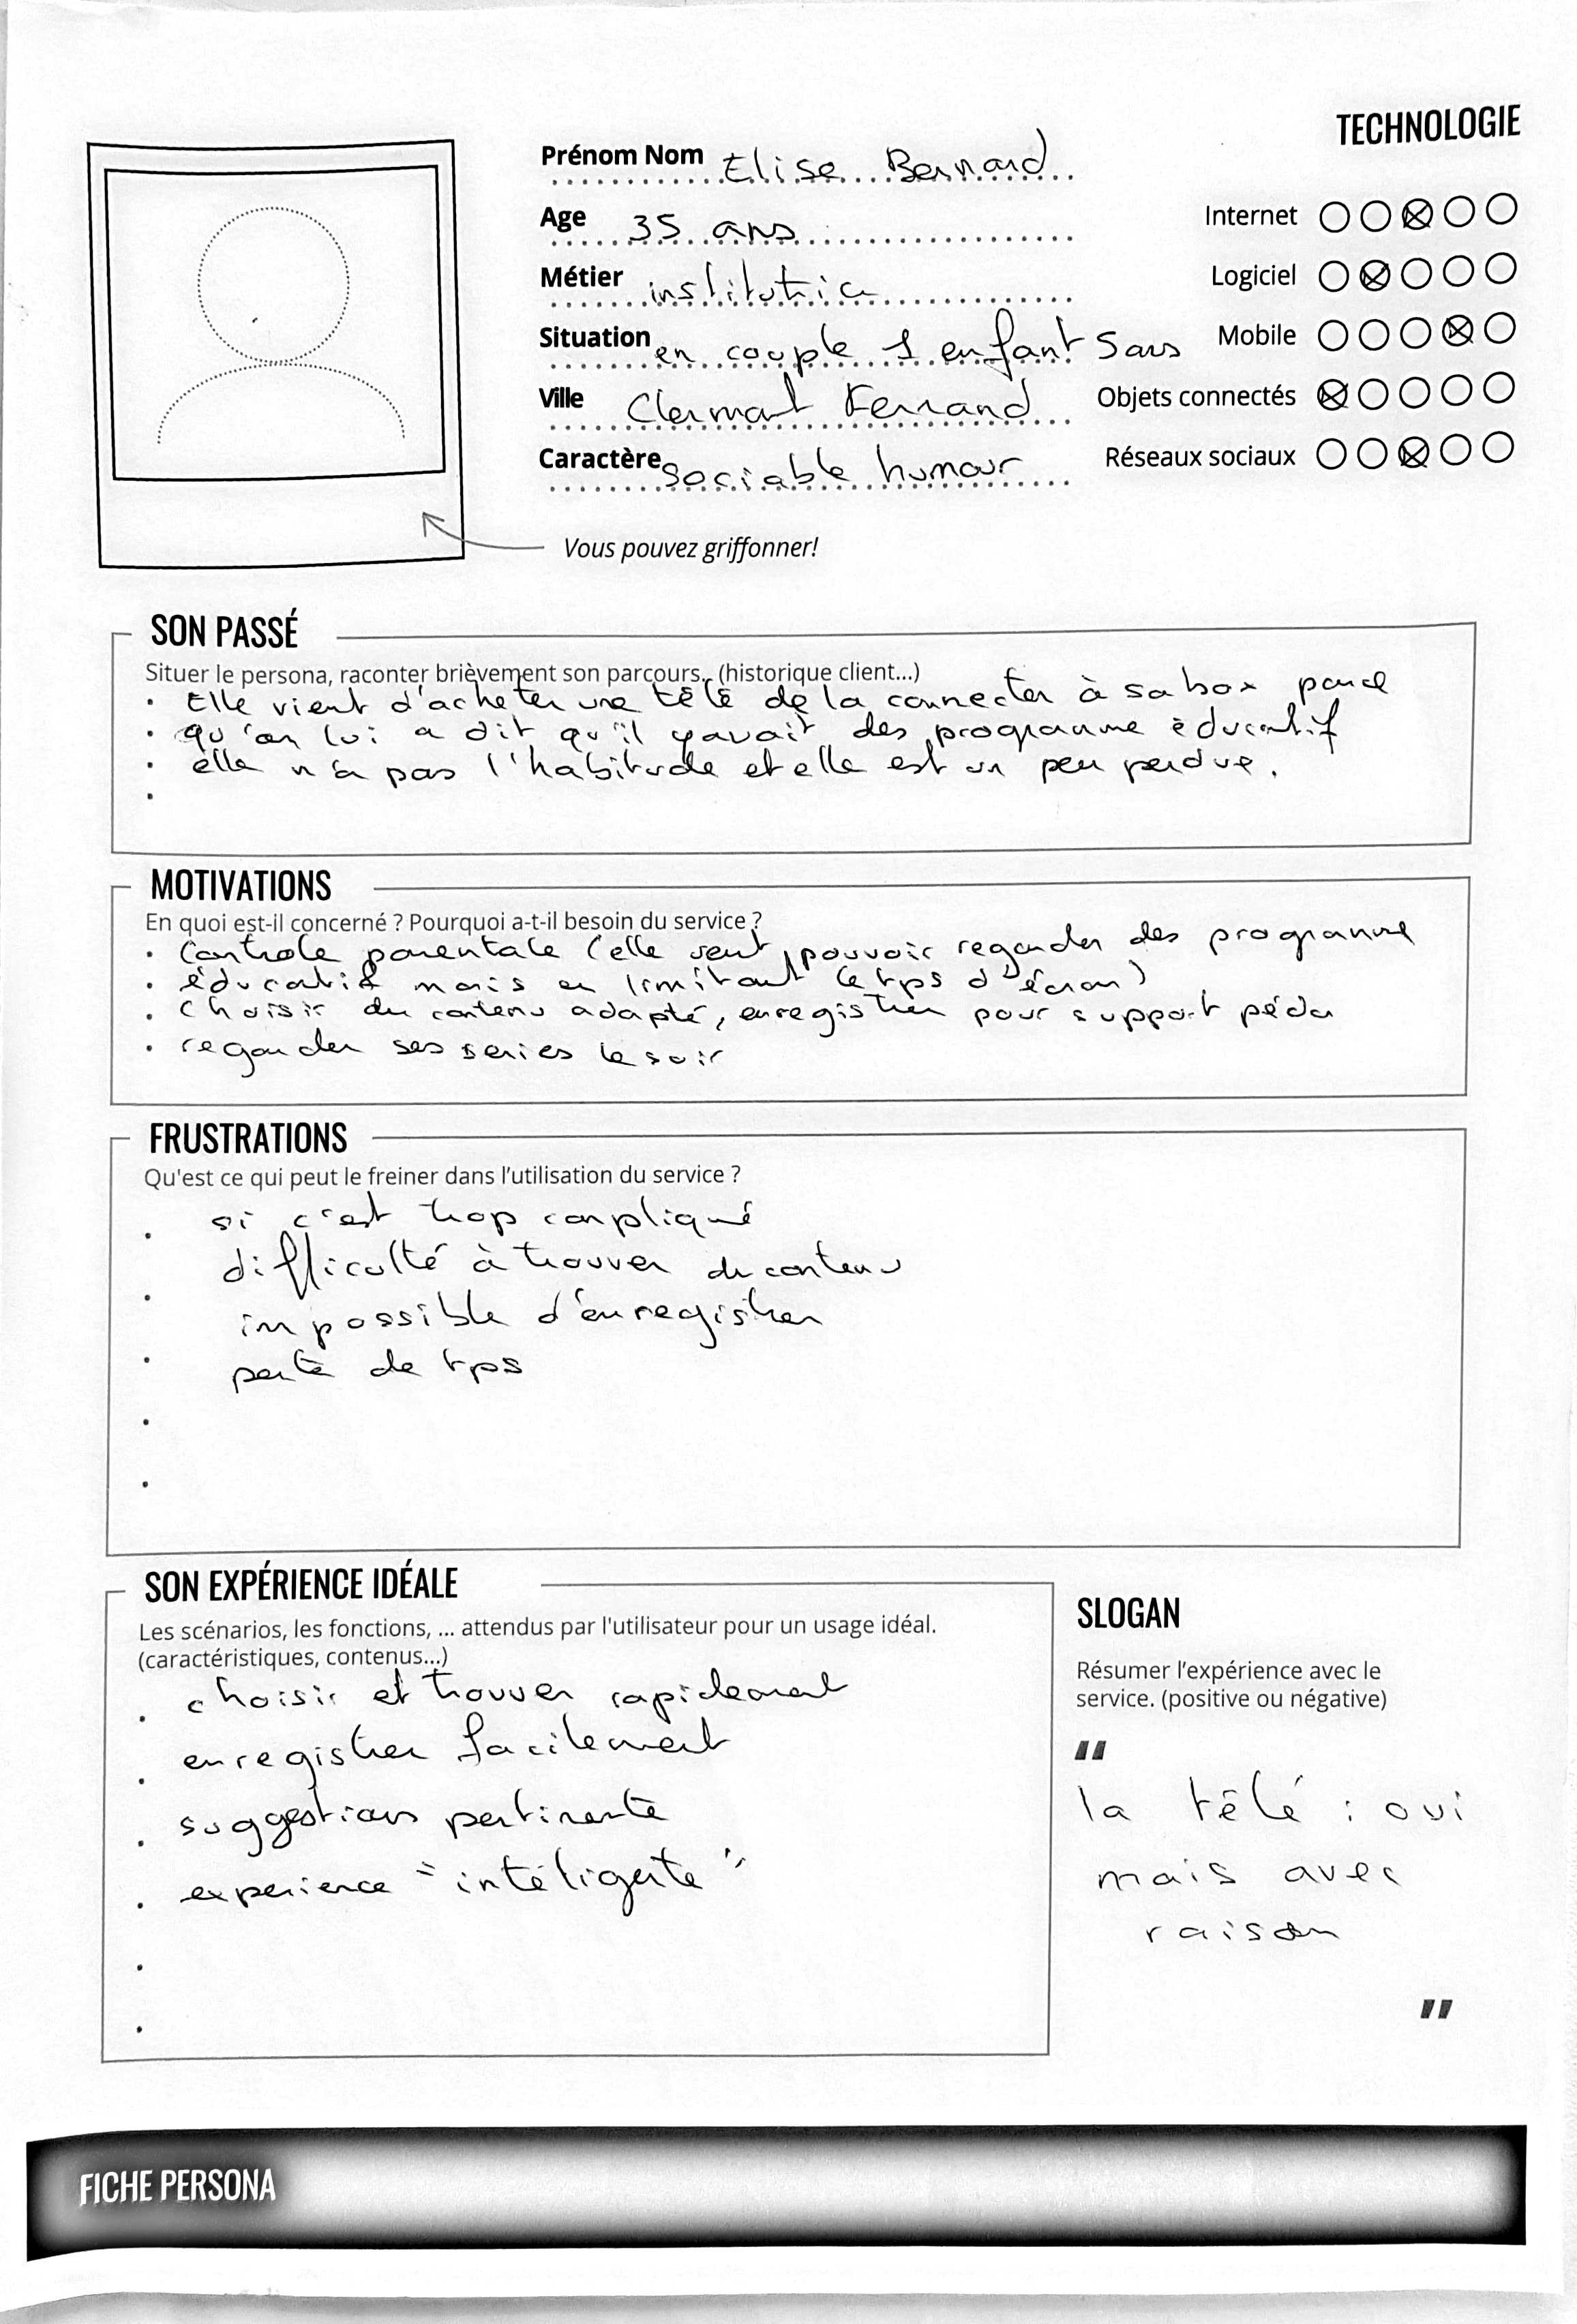 TECHNOLOGIE
Prénom Nom Elise Bernard
Age 35 ans
Métier institutrice
Situation en couple 1 enfant 5 ans
Ville Clermont Ferrand
Caractère sociable humour
Internet
Logiciel
Mobile
Objets connectés
Réseaux sociaux
Vous pouvez griffonner!
SON PASSÉ
Situer le persona, raconter brièvement son parcours.. (historique client...)
• Elle vient d'acheter une télé de la connecter à sa box parce
• qu'on lui a dit qu'il y avait des programme éducatif
• elle n'a pas l'habitude et elle est un peu perdue.
•
MOTIVATIONS
En quoi est-il concerné ? Pourquoi a-t-il besoin du service ?
• Controle parentale (elle veut pouvoir regarder des programme
• éducatif mais en limitant le tps d'écran)
• choisir du contenu adapté, enregistrer pour support péda
• regarder ses series le soir
FRUSTRATIONS
Qu'est ce qui peut le freiner dans l'utilisation du service ?
• si c'est trop compliqué
• difficulté à trouver du contenu
• impossible d'enregistrer
• perte de tps
•
SON EXPÉRIENCE IDÉALE
Les scénarios, les fonctions, ... attendus par l'utilisateur pour un usage idéal.
(caractéristiques, contenus...)
• choisir et trouver rapidement
• enregistrer facilement
• suggestions pertinente
• experience "intéligente"
•
•
SLOGAN
Résumer l'expérience avec le
service. (positive ou négative)
"
la télé : oui
mais avec
raison
"
FICHE PERSONA